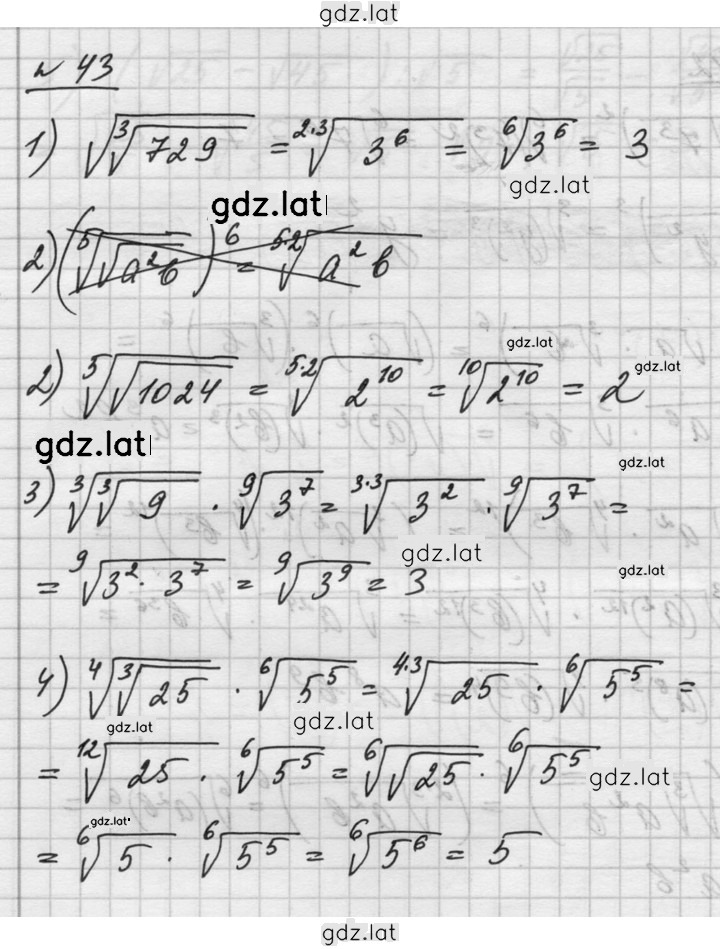 gdz.lat
№ 43
1) √∛729 = ²·³√3⁶ = ⁶√3⁶ = 3
gdz.lat
gdz.lat
2) (⁵√√a²b)⁶ = ⁵·²√a²b
gdz.lat
2) ⁵√√1024 = ⁵·²√2¹⁰ = ¹⁰√2¹⁰ = 2
gdz.lat
gdz.lat
gdz.lat
3) ∛∛9 · ⁹√3⁷ = ³·³√3² · ⁹√3⁷ =
gdz.lat
= ⁹√3² · 3⁷ = ⁹√3⁹ = 3
gdz.lat
4) ⁴√∛25 · ⁶√5⁵ = ⁴·³√25 · ⁶√5⁵ =
gdz.lat
gdz.lat
= ¹²√25 · ⁶√5⁵ = ⁶√√25 · ⁶√5⁵
gdz.lat
gdz.lat
= ⁶√5 · ⁶√5⁵ = ⁶√5⁶ = 5
gdz.lat